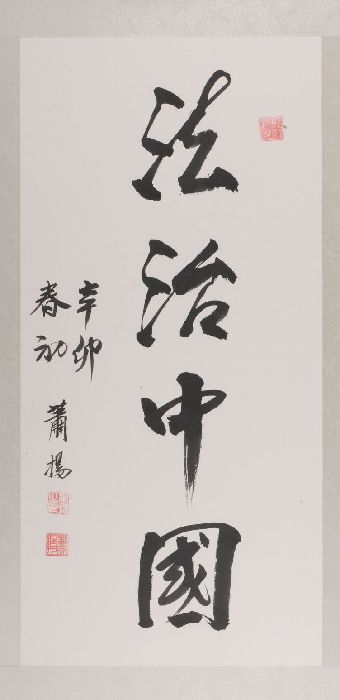 法治中國
辛卯
春初
蕭揚